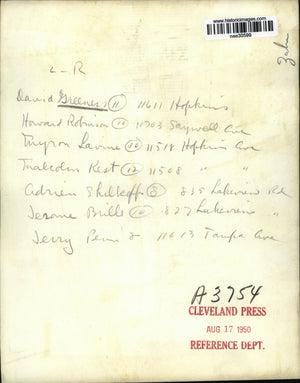 www.historicimages.com
nee30599
L-R
David Greene 11 11611 Hopkins
Howard Robinson 10 11703 Saywell Ave
Myron Levine 10 11518 Hopkins Ave
Malcolm Kest 12 11508 " "
Adrien 8 835 Lakeview Rd
Jerome Brills 10 827 Lakeview "
Jerry 8 11613 Tampa Ave
A3754
CLEVELAND PRESS
AUG 17 1950
REFERENCE DEPT.